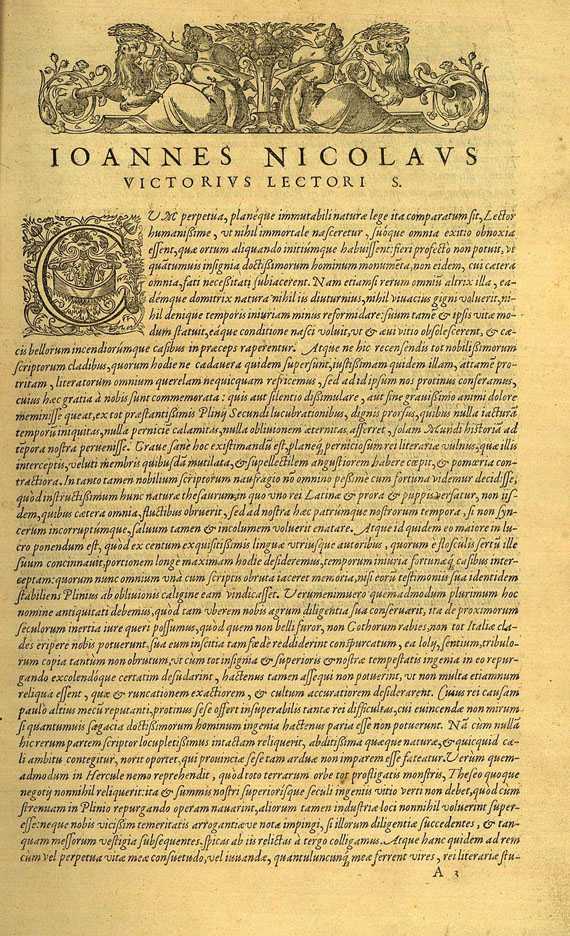 IOANNES NICOLAVS
VICTORIVS LECTORI S.
CVM perpetua, planéque immutabili naturæ lege ita comparatum sit, Lector
humanissime, vt nihil immortale nasceretur, suóque omnia exitio obnoxia
essent, quæ ortum aliquando initiúmque habuissent: fieri profecto non potuit, vt
quātumuis insignia doctissimorum hominum monumēta, non eidem, cui cætera
omnia, fati necessitati subiacerent. Nam etiamsi rerum omniū altrix illa, ea-
démque domitrix natura nihil iis diuturnius, nihil viuacius gigni voluerit, ni-
hil denique temporis iniuriam minus reformidare: suum tamē & ipsis vitæ mo-
dum statuit, eáque conditione nasci voluit, vt & æui vitio obsolescerent, & cæ-
cis bellorum incendiorúmque casibus in præceps raperentur. Atque ne hic recensendis tot nobilissimorum
scriptorum cladibus, quorum hodie ne cadauera quidem supersunt, iustissimam quidem illam, attamē pro-
tritam, literatorum omnium querelam nequicquam refricemus, sed ad id ipsum nos protinus conferamus,
cuius hæc gratia à nobis sunt commemorata: quis aut silentio dissimulare, aut sine grauissimo animi dolore
meminisse queat, ex tot præstantissimis Plinij Secundi lucubrationibus, dignis prorsus, quibus nulla iacturā
temporū iniquitas, nulla pernicié calamitas, nulla obliuionem æternitas afferret, solam Mundi historiā ad
tēpora nostra peruenisse. Graue sanè hoc existimandū est, planeq́; perniciosum rei literariæ vulnus, quæ illis
interceptis, veluti membris quibusdā mutilata, & supellectilem angustiorem habere cœpit, & pomœria con-
tractiora. In tanto tamen nobilium scriptorum naufragio no omnino pessime cum fortuna videmur decidisse,
quòd instructissimum hunc naturæ thesaurum, in quo vno rei Latinæ & prora & puppis versatur, non iis-
dem, quibus cætera omnia, fluctibus obruerit, sed ad nostra hæc patrúmque nostrorum tempora, si non syn-
cerum incorruptúmque, saluum tamen & incolumem voluerit enatare. Atque id quidem eo maiore in lu-
cro ponendum est, quòd ex centum exquisitissimis linguæ vtriusque autoribus, quorum è flosculis sertū ille
suum concinnauit, portionem longe maximam hodie desideremus, temporum iniuria fortunæq́; casibus inter-
ceptam: quorum nunc omnium vnà cum scriptis obruta iaceret memoria, nisi eorū testimoniis sua identidem
stabiliens Plinius ab obliuionis caligine eam vindicasset. Verumenimuero quemadmodum plurimum hoc
nomine antiquitati debemus, quòd tam vberem nobis agrum diligentia sua conseruarit, ita de proximorum
seculorum inertia iure queri possumus, quòd quem non belli furor, non Gothorum rabies, non tot Italiæ cla-
des eripere nobis potuerunt, sua eum inscitia tam fœdè reddiderint conspurcatum, ea lolij, sentium, tribulo-
rum copia tantùm non obrutum, vt cùm tot insignia & superioris & nostræ tempestatis ingenia in eo repur-
gando excolendóque certatim desudarint, hactenus tamen assequi non potuerint, vt non multa etiamnum
reliqua essent, quæ & runcationem exactiorem, & cultum accuratiorem desiderarent. Cuius rei causam
paulò altius mecū reputanti, protinus sese offert insuperabilis tantæ rei difficultas, cui euincendæ non mirum
si quantumuis sagacia doctissimorum hominum ingenia hactenus paria esse non potuerunt. Nā cum nullā
hic rerum partem scriptor locupletissimus intactam reliquerit, abditissima quæque naturæ, & quicquid cæ-
li ambitu contegitur, norit oportet, qui prouinciæ sese tam arduæ non imparem esse fateatur. Verùm quem-
admodum in Hercule nemo reprehendit, quòd toto terrarum orbe tot profligatis monstris, Theseo quoque
negotij nonnihil reliquerit: ita & summis nostri superiorísque seculi ingeniis vitio verti non debet, quòd cùm
strenuam in Plinio repurgando operam nauarint, aliorum tamen industriæ loci nonnihil voluerint super-
esse: neque nobis vicissim temeritatis arrogantiæve nota impingi, si illorum diligentiæ succedentes, & tan-
quam messorum vestigia subsequentes, spicas ab iis relictas à tergo colligamus. Atque hanc quidem ad rem
cùm vel perpetua vitæ meæ consuetudo, vel iuuandæ, quantuluncunq́; meæ ferrent vires, rei literariæ stu-
A 3